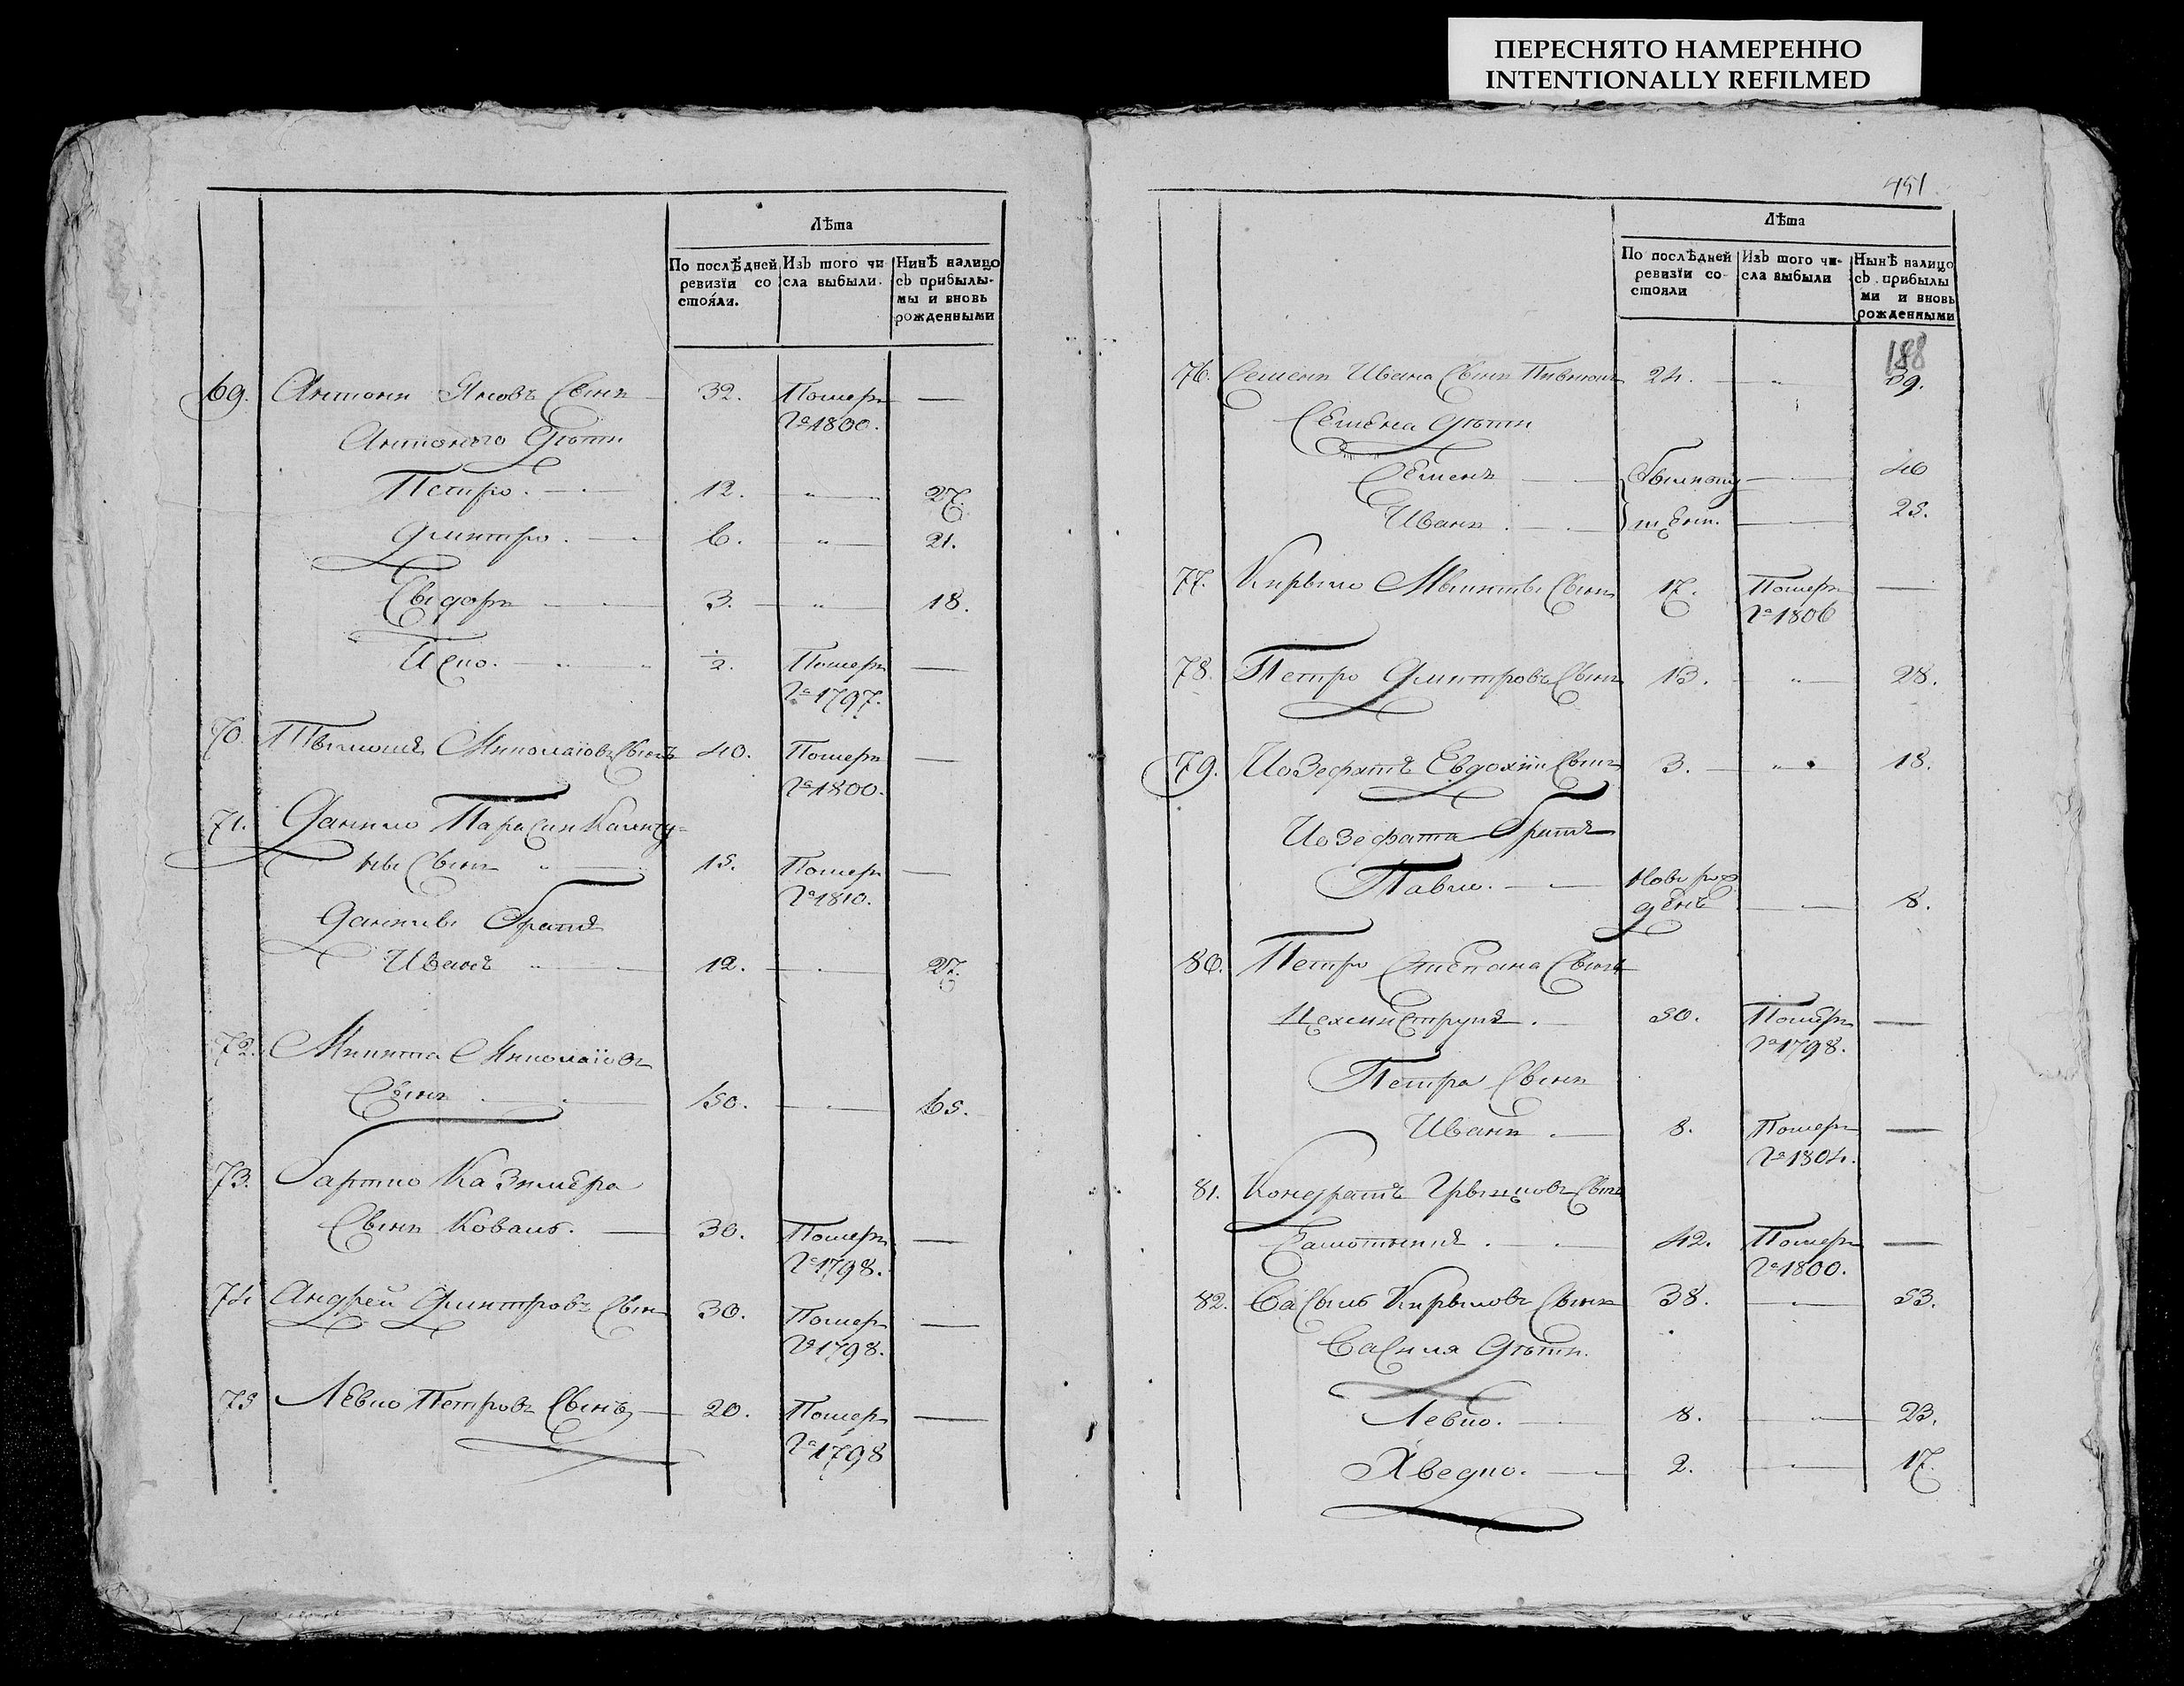 ПЕРЕСНЯТО НАМЕРЕННО
INTENTIONALLY REFILMED
Лѣта
По послѣдней ревизїи состояли.
Изъ того числа выбыли.
Нинѣ налицо съ прибылымы и вновь рожденными
69. Антонъ Яковъ Сынъ 32. Померъ —
Го 1800.
Антоного Дѣти
Петро. 12. „ 27.
Дмитро. 6. „ 21.
Сыдоръ 3. „ 18.
Иско. ½. Померъ —
Го 1797.
70. Миколаіовъ Сынъ 40. Померъ —
Го 1800.
71. Данило Парасин
ны Сынъ „ 15. Померъ —
Го 1810.
Данилы Братъ
Иванъ „ 12. 27.
72. Микита Миколаїовъ
Сынъ 50. 65.
73. Бартко Казимера
Сынъ Коваль. 30. Померъ —
Го 1798.
74 Андрей Дмитровъ Сынъ 30. Померъ —
Го 1798.
75 Левко Петровъ Сынъ 20. Померъ —
Го 1798
451
Лѣта
По послѣдней ревизїи состояли
Изъ того числа выбыли
Нынѣ налицо съ прибылыми и вновь рожденными
188
76. Семенъ Ивана Сынъ 24. „ 39.
Семена Дѣти
Семенъ 46
Иванъ 25.
77. Кирыло Мыкиты Сынъ 17. Померъ —
Го 1806
78. Петро Дмитровъ Сынъ 13. „ 28.
79. Иозефатъ Евдохїи Сынъ 3. „ 18.
Иозефата Братъ
Павло. Новорож
денъ 8.
80. Петро Степана Сынъ
50. Померъ —
Го 1798.
Петра Сынъ
Иванъ 8. Померъ —
Го 1804.
81. Кондратъ Грыцковъ Сынъ
42. Померъ —
Го 1800.
82. Васыль Кирыловъ Сынъ 38. 53.
Василя Дѣти.
Левко. 8. 23.
Хведко. 2. 17.